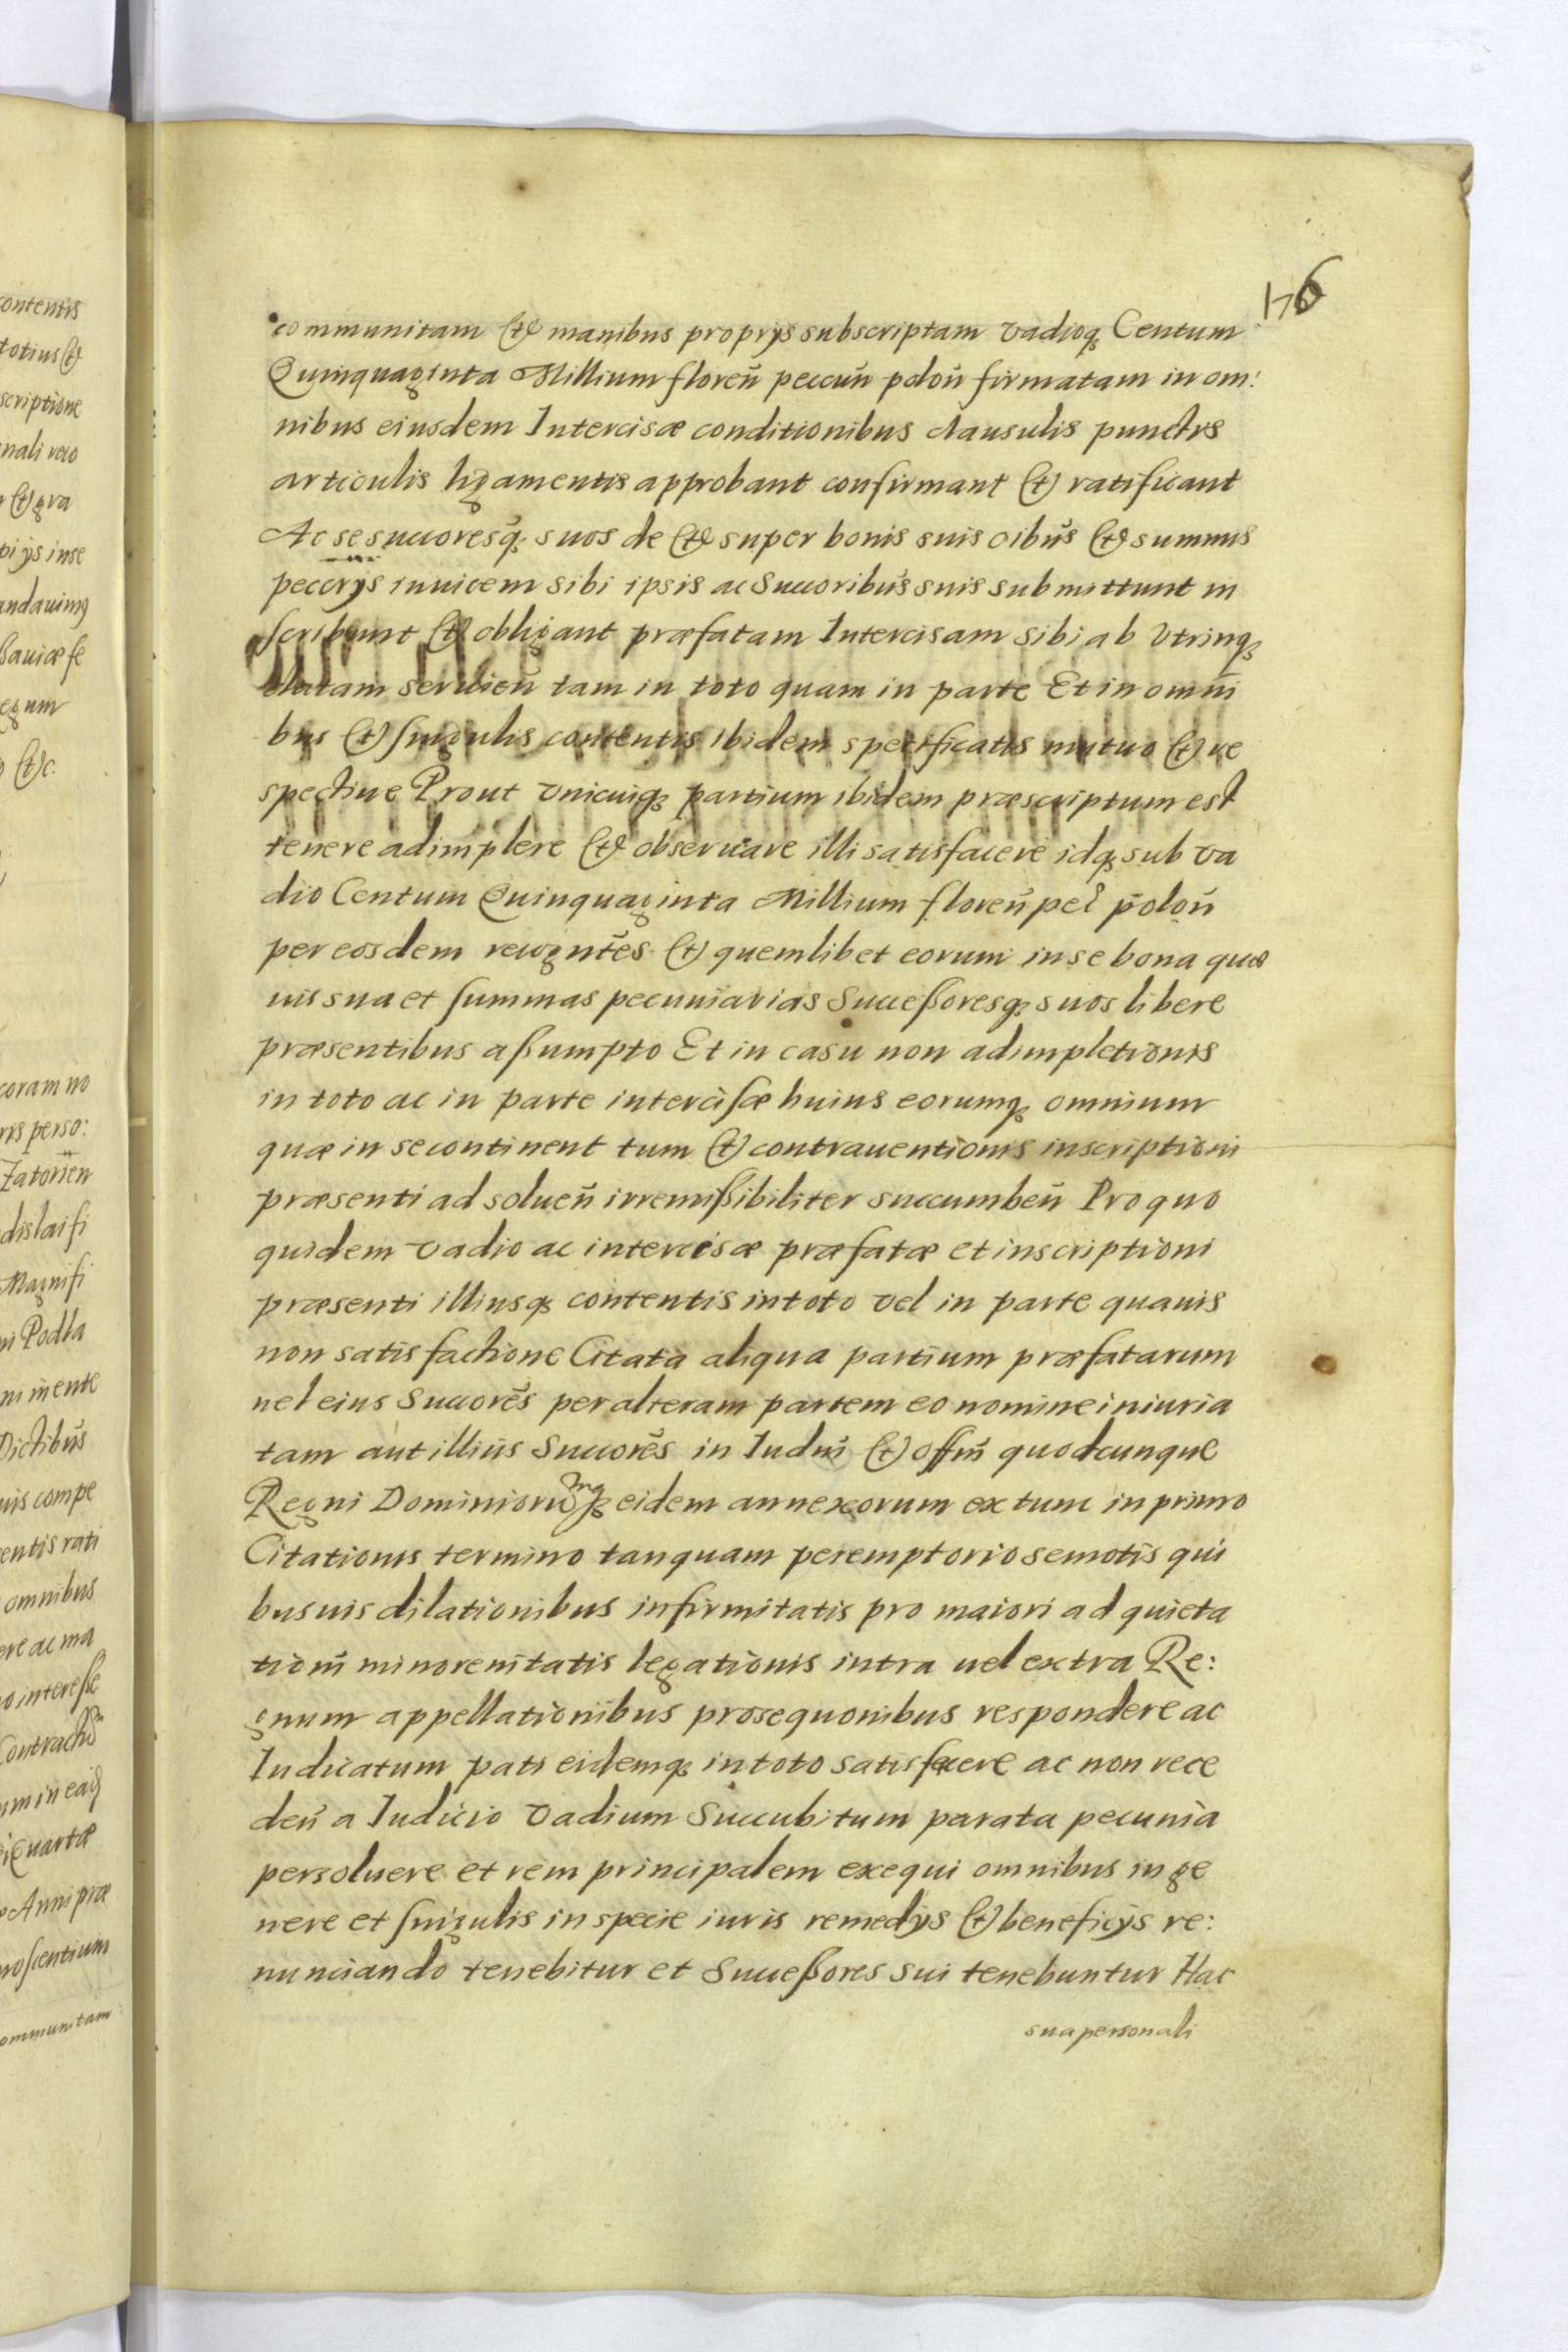 176
communitam & manibus proprÿs subscriptam vadioq̄ Centum
Quinquaginta Millium floreñ peccuñ poloñ firmatam in om:
nibus eiusdem Intercisæ conditionibus clausulis punctis
articulis ligamentis approbant confirmant & ratificant
Ac se succoresq̄ suos de & super bonis suis oibūs & summis
peccrÿs inuicem sibi ipsis ac Succoribūs suis submittunt in
scribunt & obligant præfatam Intercisam sibi ab vtrinq̄
datam seruien̄ tam in toto quam in parte Et in omni
bus & singulis contentis ibidem specificatis mutuo & re
spectiue Prout vnicuiq̄ partium ibidem præscriptum est
tenere adimplere & obseruare illi satisfacere idq̄ sub va
dio Centum Quinquaginta Millium floreñ pec̄ poloñ
per eosdem recogntēs & quemlibet eorum in se bona quæ
uis sua et summas pecuniarias Succeßoresq̄ suos libere
præsentibus aßumpto Et in casu non adimpletionis
in toto ac in parte intercisæ huius eorumq̄ omnium
quæ in se continent tum & contrauentionis inscriptioni
præsenti ad soluen̄ irremißibiliter succumben̄ Pro quo
quidem vadio ac intercisæ præfatæ et inscriptioni
præsenti illiusq̄ contentis in toto vel in parte quauis
non satisfactione Citata aliqua partium præfatarum
uel eius Succorēs per alteram partem eo nomine iniuria
tam aut illius Succorēs in Iudm̄ & offm̄ quodcunque
Regni Dominiorūmq̄ eidem annexorum ex tunc in primo
Citationis termino tanquam peremptorio semotis qui
busuis dilationibus infirmitatis pro maiori ad quieta
tiom̄ minorenītatis legationis intra uel extra Re:
gnum appellationibus prosequonibus respondere ac
Iudicatum pati eidemq̄ in toto satisfacere ac non rece
den̄ a Iudicio vadium Succubitum parata pecunia
persoluere et rem principalem exequi omnibus in ge
nere et singulis in specie iuris remedÿs & beneficÿs re:
nunciando tenebitur et Succeßores sui tenebuntur Hac
sua personali